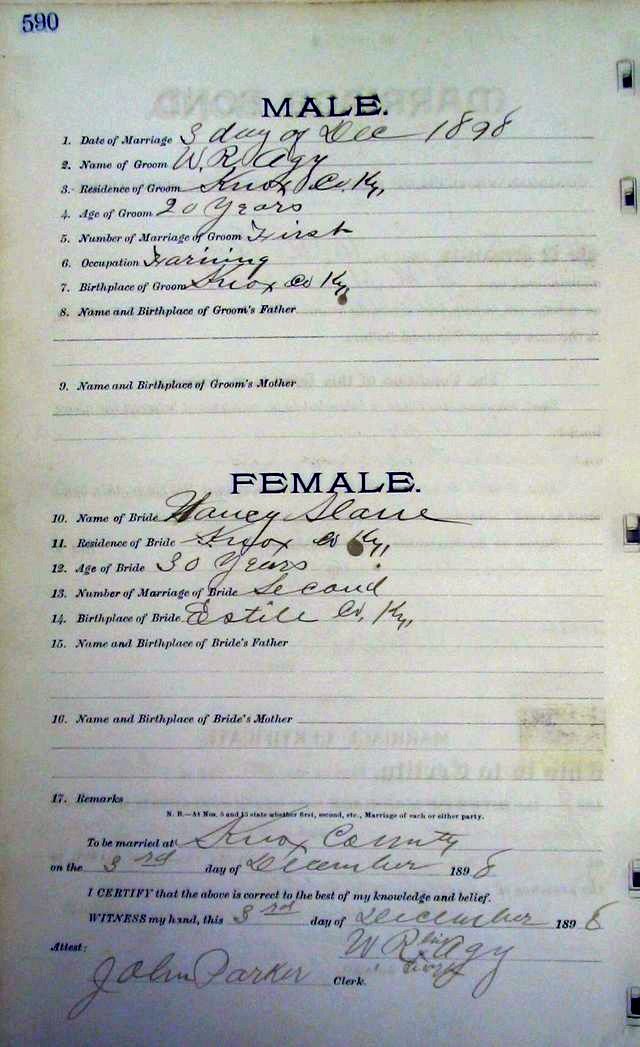 590
MALE.
1. Date of Marriage 3 day of Dec 1898
2. Name of Groom W. R. Agy
3. Residence of Groom Knox Co. Ky,
4. Age of Groom 20 Years
5. Number of Marriage of Groom First
6. Occupation Farming
7. Birthplace of Groom Knox Co Ky,
8. Name and Birthplace of Groom's Father
9. Name and Birthplace of Groom's Mother
FEMALE.
10. Name of Bride Nancy
11. Residence of Bride Knox Co Ky,
12. Age of Bride 30 Years
13. Number of Marriage of Bride Second
14. Birthplace of Bride Estill Co, Ky,
15. Name and Birthplace of Bride's Father
16. Name and Birthplace of Bride's Mother
17. Remarks
N. B.—At Nos. 5 and 13 state whether first, second, etc., Marriage of each or either party.
To be married at Knox County
on the 3rd day of December 1898
I CERTIFY that the above is correct to the best of my knowledge and belief.
WITNESS my hand, this 3rd day of December 1898
W R his Agy
Attest:
John Parker Clerk.